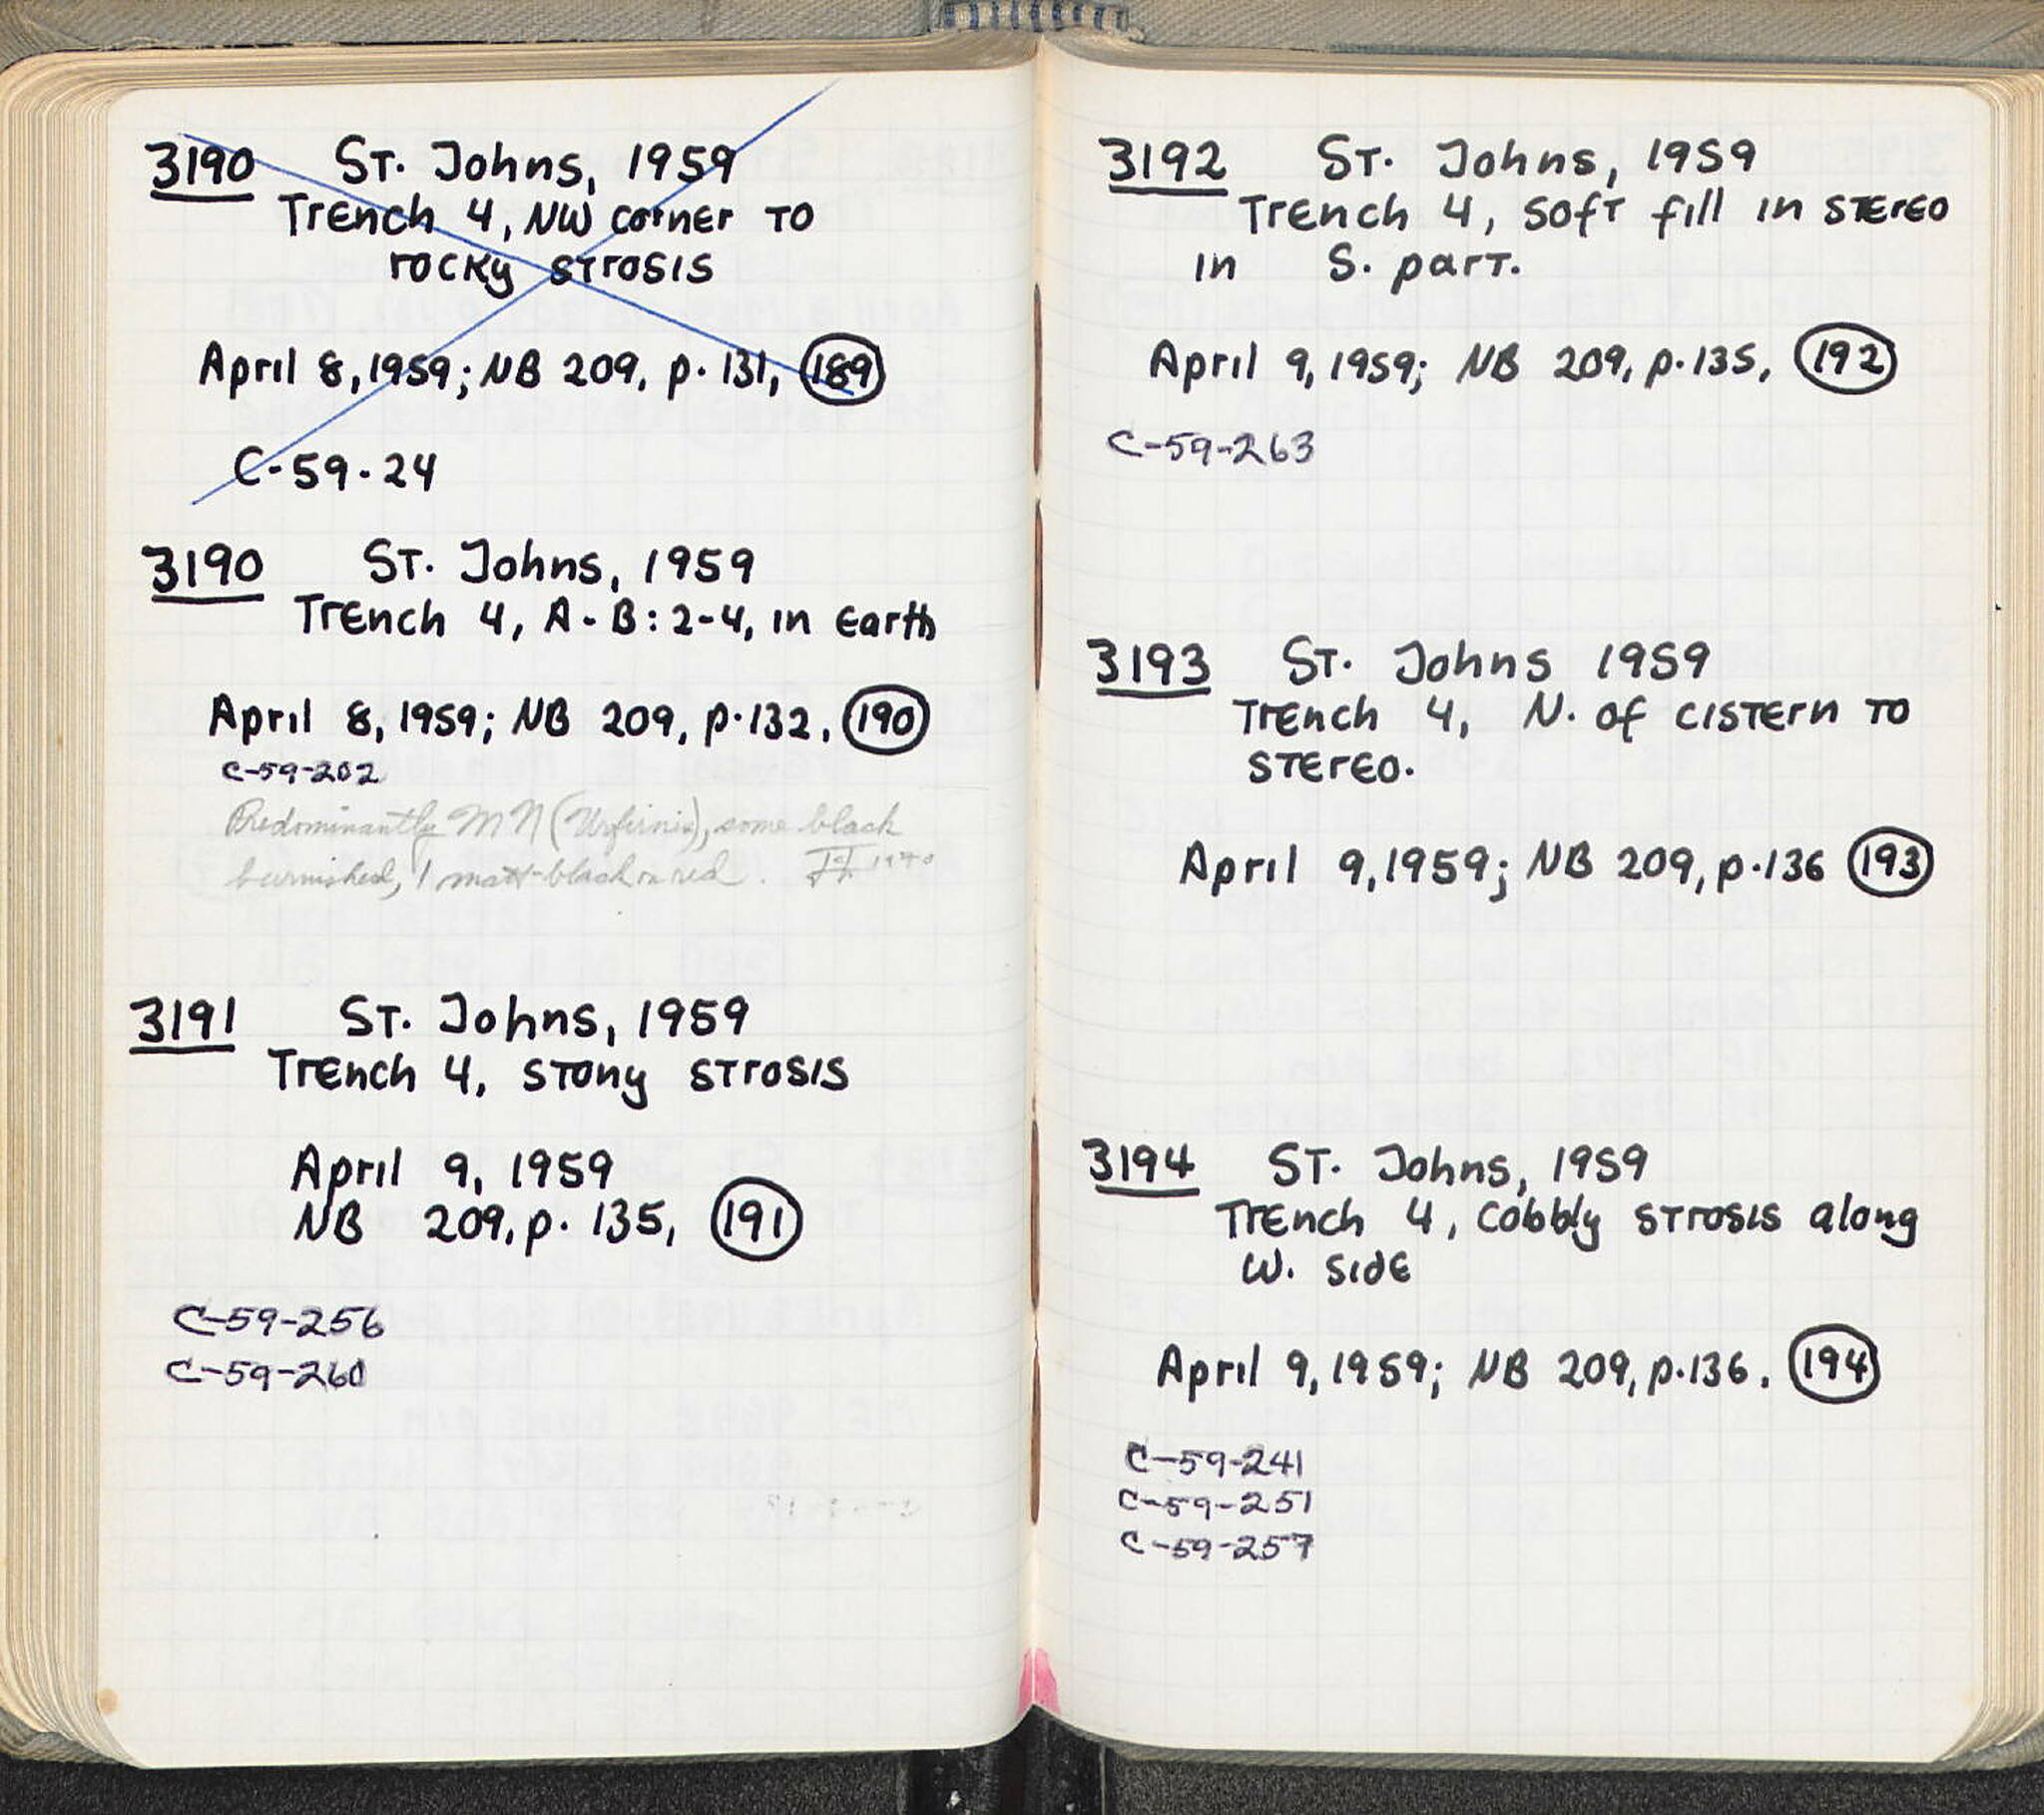 3190 ST. Johns, 1959
Trench 4, NW corner to
rocky strosis
April 8, 1959; NB 209, p. 131, 189
C-59-24
3190 ST. Johns, 1959
Trench 4, A-B: 2-4, in Earth
April 8, 1959; NB 209, p. 132, 190
C-59-202
Predominantly MN (Urfirnis), some black
burnished, 1 matt-black on red.
3191 ST. Johns, 1959
Trench 4, stony strosis
April 9, 1959
NB 209, p. 135, 191
C-59-256
C-59-260
3192 ST. Johns, 1959
Trench 4, soft fill in stereo
in S. part.
April 9, 1959; NB 209, p. 135, 192
C-59-263
3193 ST. Johns 1959
Trench 4, N. of cistern to
stereo.
April 9, 1959; NB 209, p. 136 193
3194 ST. Johns, 1959
Trench 4, cobbly strosis along
W. side
April 9, 1959; NB 209, p. 136. 194
C-59-241
C-59-251
C-59-257